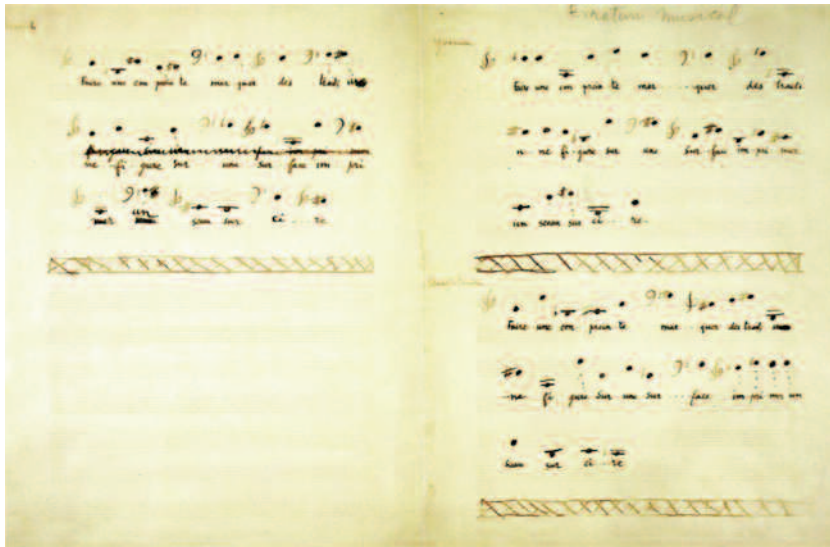 faire une em prein te mar quer des traits u
ne fi gure sur une sur face im pri
mer un sceau sur ci --- re
Erratum musical
Yvonne
faire une em prein te mar --- quer des traits
u ne fi gure sur une sur face im pri mer
un sceau sur ci --- re
faire une em prein te mar - quer des trait
ne fi gure sur une sur face im pri mer un
sceau sur ci - re